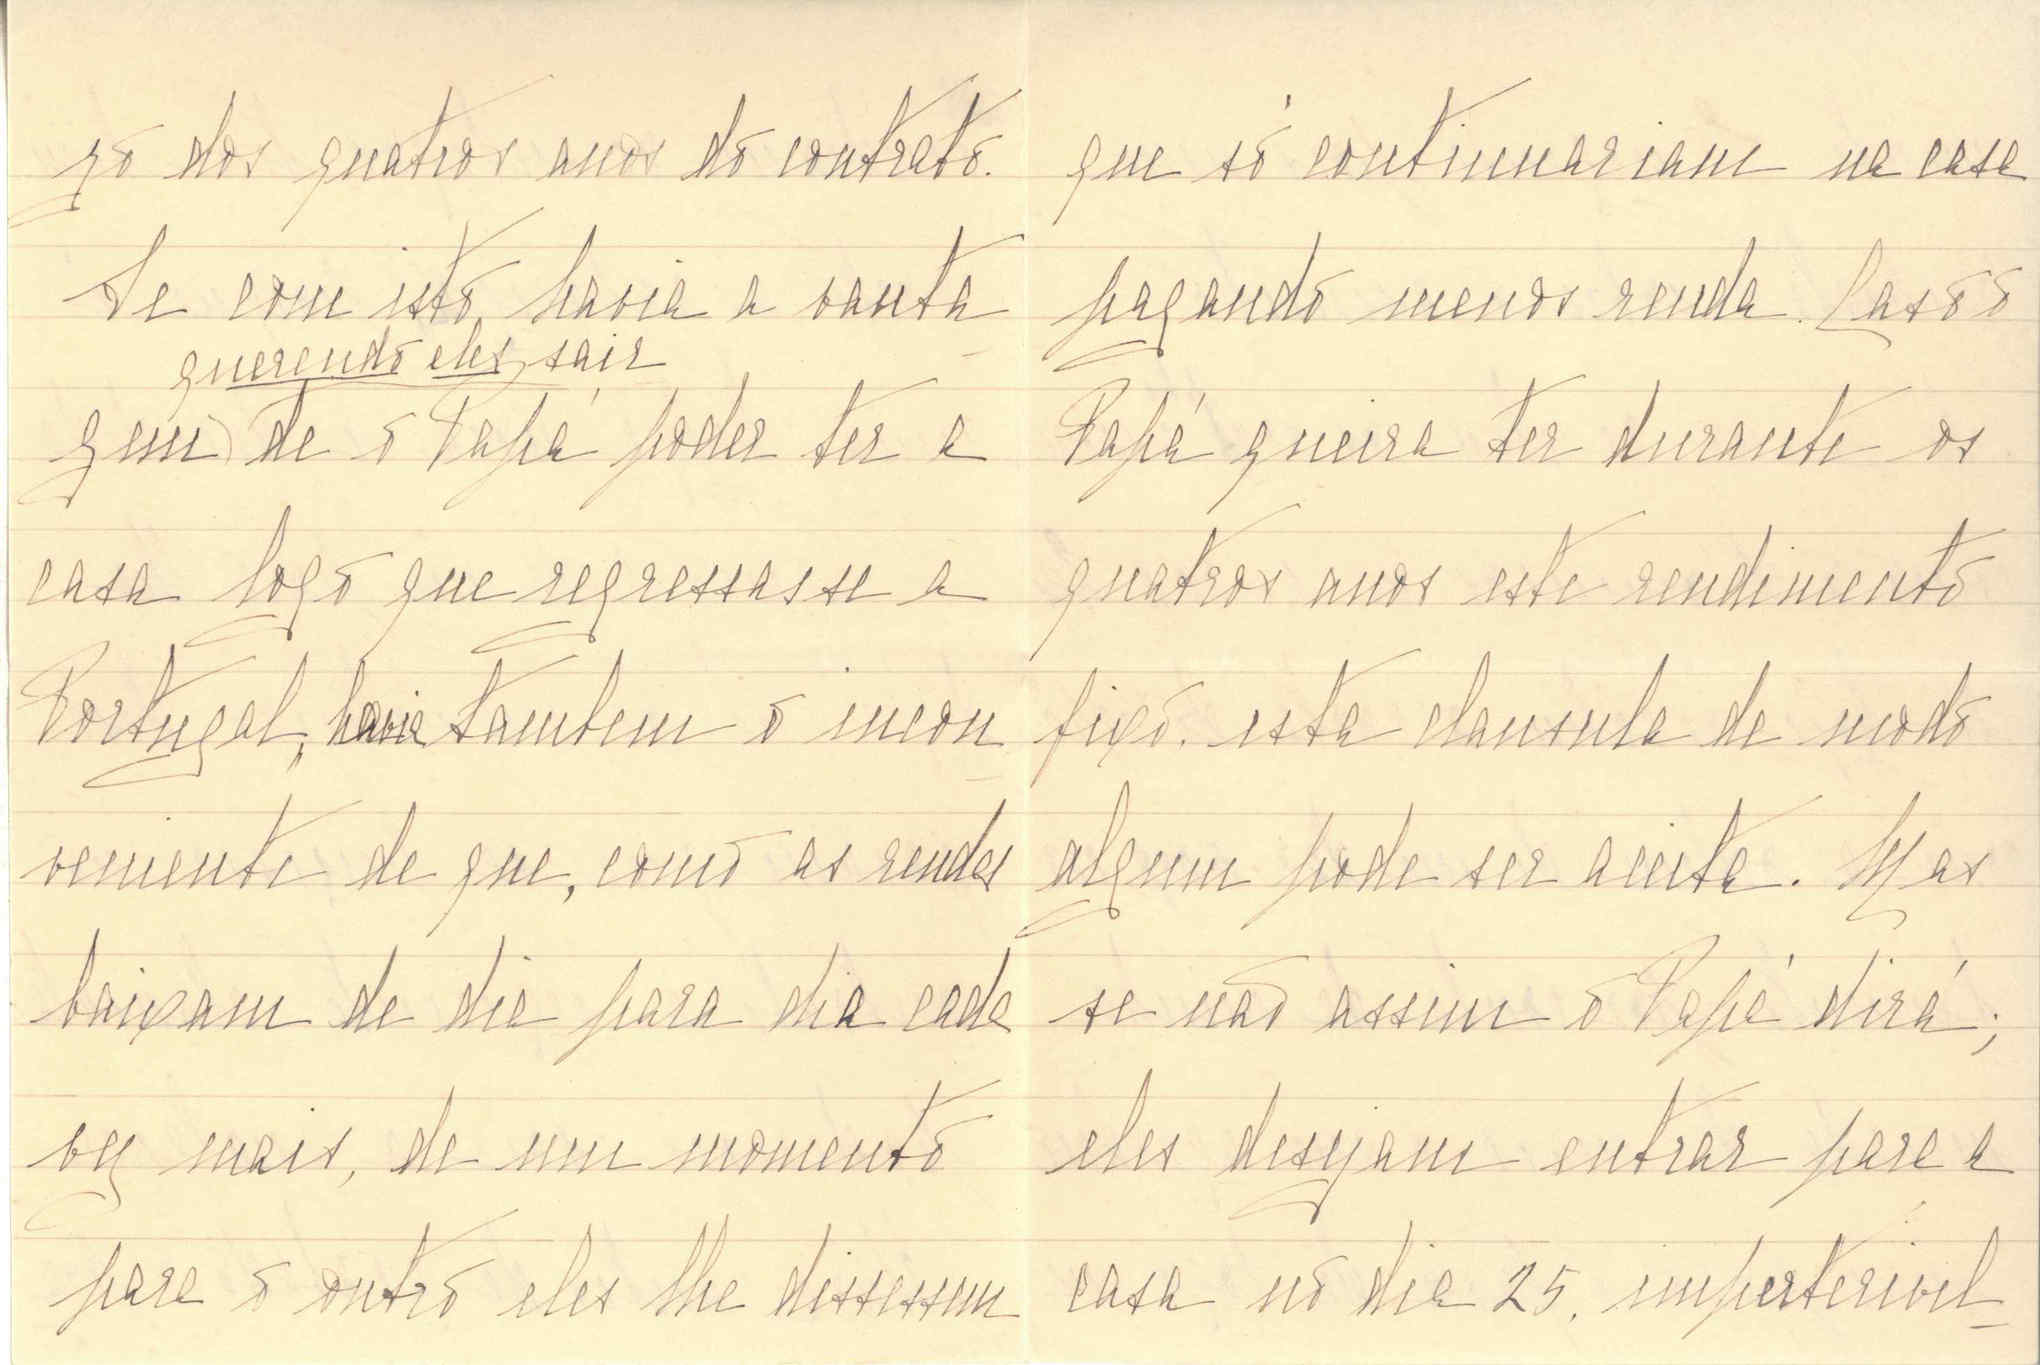 zo dos quatros anos do contrato.
Se com isto, havia a vanta
querendo eles sair
gem de o Papá poder ter a
casa logo que regressasse a
Portugal, havia tambem o incon
veniente de que, como as rendas
baixam de dia para dia cada
vez mais, de um momento
para o outro eles lhe dissessem
que só continuariam na casa
pagando menos renda. Caso o
Papá queira ter durante os
quatros anos este rendimento
fixo. esta clausula de modo
algum pode ser aceita. Mas
se não assim o Papá dirá;
eles desejam entrar para a
casa no dia 25, imperterivel-